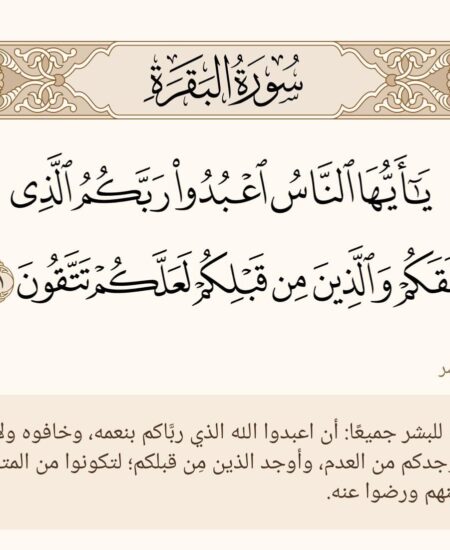 سُورَةُ البَقَرَةِ
يَٰٓأَيُّهَا ٱلنَّاسُ ٱعۡبُدُواْ رَبَّكُمُ ٱلَّذِى
وَٱلَّذِينَ مِن قَبۡلِكُمۡ لَعَلَّكُمۡ تَتَّقُونَ
للبشر جميعًا: أن اعبدوا الله الذي ربَّاكم بنعمه، وخافوه
من العدم، وأوجد الذين مِن قبلكم؛ لتكونوا من
ورضوا عنه.